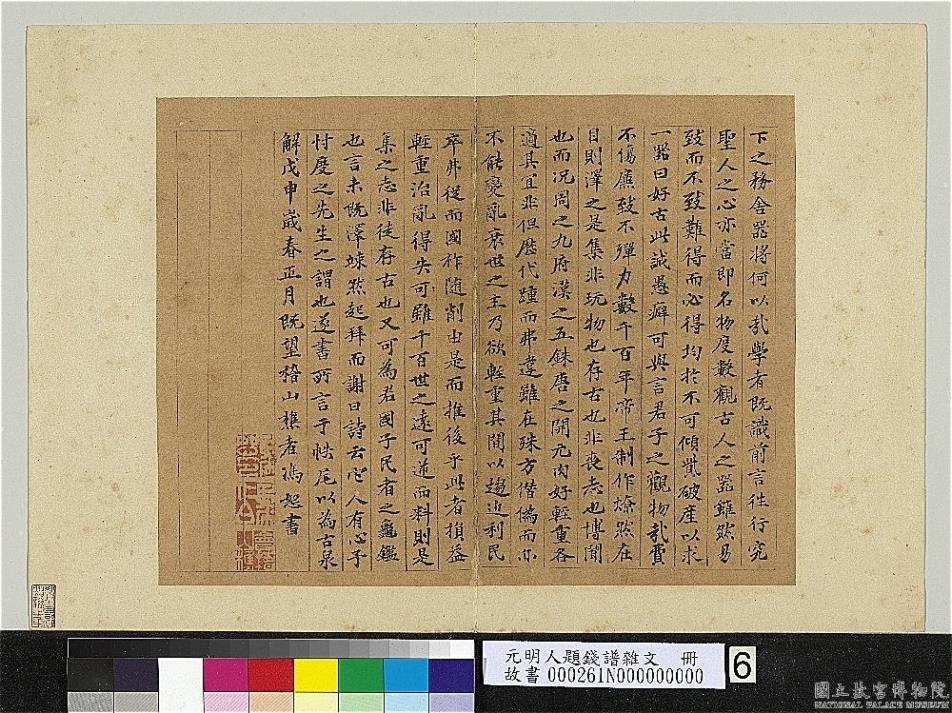 下之務舍器將何以哉學者既識前言往行究
聖人之心亦當即名物度數觀古人之器雖然易
致而不致難得而必得均於不可傾貲破產以求
一器曰好古此誠愚癖可與言君子之觀物哉費
不傷廉致不殫力數千百年帝王制作燎然在
目則澤之是集非玩物也存古也非喪志也博聞
也而況周之九府漢之五銖唐之開元肉好輕重各
適其宜非但歷代踵而弗違雖在殊方僭偽而亦
不能變亂衰世之主乃欲輕重其間以趨近利民
卒弗從而國祚隨削由是而推後乎此者損益
輕重治亂得失可雖千百世之遠可道而料則是
集之志非徒存古也又可為君國子民者之龜鑑
也言未既澤竦然起拜而謝曰詩云他人有心予
忖度之先生之謂也遂書所言于帙尾以為古泉
解戊申歲春正月既望稽山樵者馮恕書
元明人題錢譜雜文 冊
故書 000261N000000000
6
國立故宮博物院
NATIONAL PALACE MUSEUM